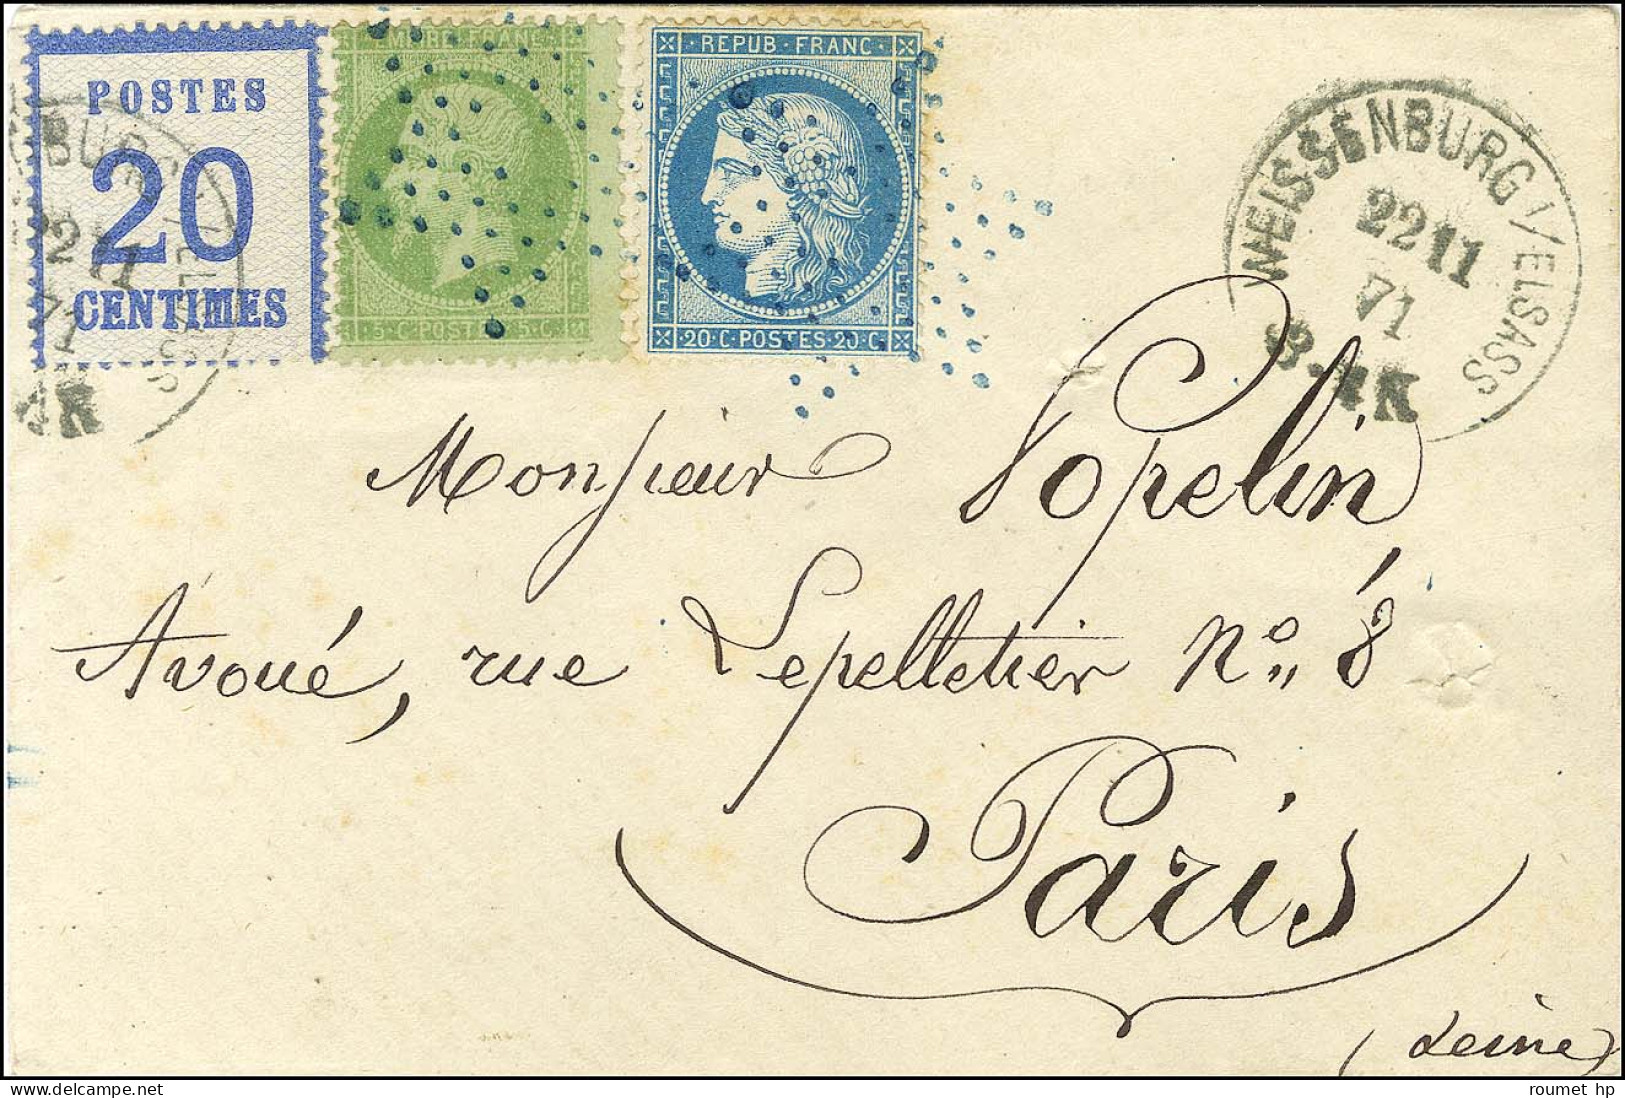 POSTES
20
CENTIMES
EMPIRE FRANC
5 C POSTES 5 C
REPUB FRANC
20 C POSTES 20 C
WEISSENBURG I/ELSASS
22 11
71
Monsieur Popelin
Avoué, rue Lepelletier No 8
Paris
(Seine)
roumet hp